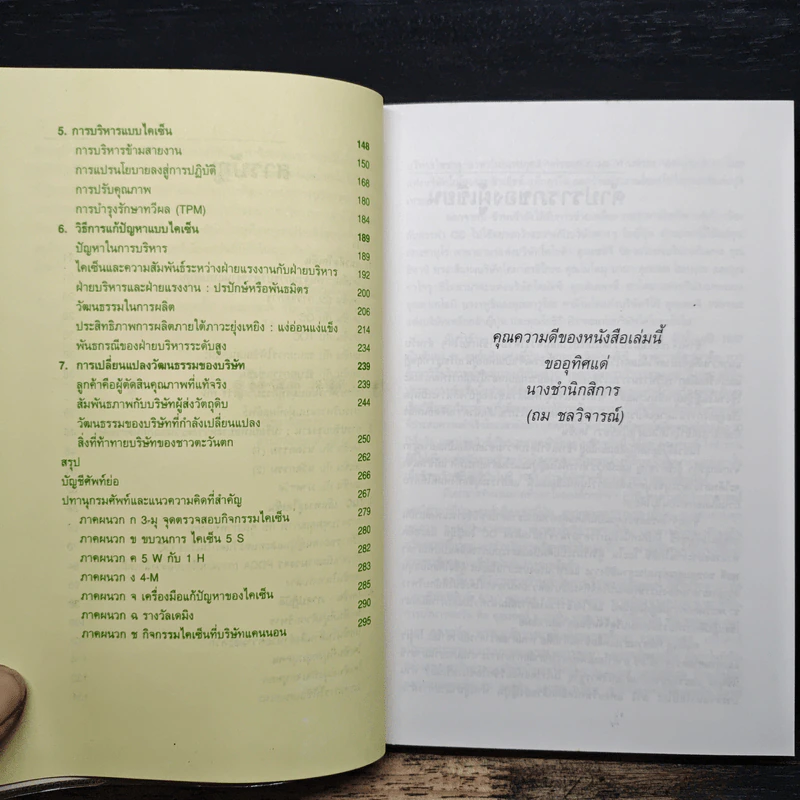 5. การบริหารแบบไคเซ็น 148
การบริหารข้ามสายงาน 150
การแปรนโยบายลงสู่การปฏิบัติ 168
การปรับคุณภาพ 180
การบำรุงรักษาทวีผล (TPM) 184
6. วิธีการแก้ปัญหาแบบไคเซ็น 189
ปัญหาในการบริหาร 189
ไคเซ็นและความสัมพันธ์ระหว่างฝ่ายแรงงานกับฝ่ายบริหาร 192
ฝ่ายบริหารและฝ่ายแรงงาน : ปรปักษ์หรือพันธมิตร 200
วัฒนธรรมในการผลิต 206
ประสิทธิภาพการผลิตภายใต้ภาวะยุ่งเหยิง : แง่อ่อนแง่แข็ง 214
พันธกรณีของฝ่ายบริหารระดับสูง 234
7. การเปลี่ยนแปลงวัฒนธรรมของบริษัท 239
ลูกค้าคือผู้ตัดสินคุณภาพที่แท้จริง 239
สัมพันธภาพกับบริษัทผู้ส่งวัตถุดิบ 244
วัฒนธรรมของบริษัทที่กำลังเปลี่ยนแปลง
สิ่งที่ท้าทายบริษัทของชาวตะวันตก 250
สรุป 262
บัญชีศัพท์ย่อ 266
ปทานุกรมศัพท์และแนวความคิดที่สำคัญ 267
ภาคผนวก ก 3-มุ จุดตรวจสอบกิจกรรมไคเซ็น 279
ภาคผนวก ข ขบวนการ ไคเซ็น 5 S 280
ภาคผนวก ค 5 W กับ 1 H 282
ภาคผนวก ง 4-M 283
ภาคผนวก จ เครื่องมือแก้ปัญหาของไคเซ็น 285
ภาคผนวก ฉ รางวัลเดมิง 290
ภาคผนวก ช กิจกรรมไคเซ็นที่บริษัทแคนนอน 295
คุณความดีของหนังสือเล่มนี้
ขออุทิศแด่
นางชำนิกสิการ
(ถม ชลวิจารณ์)